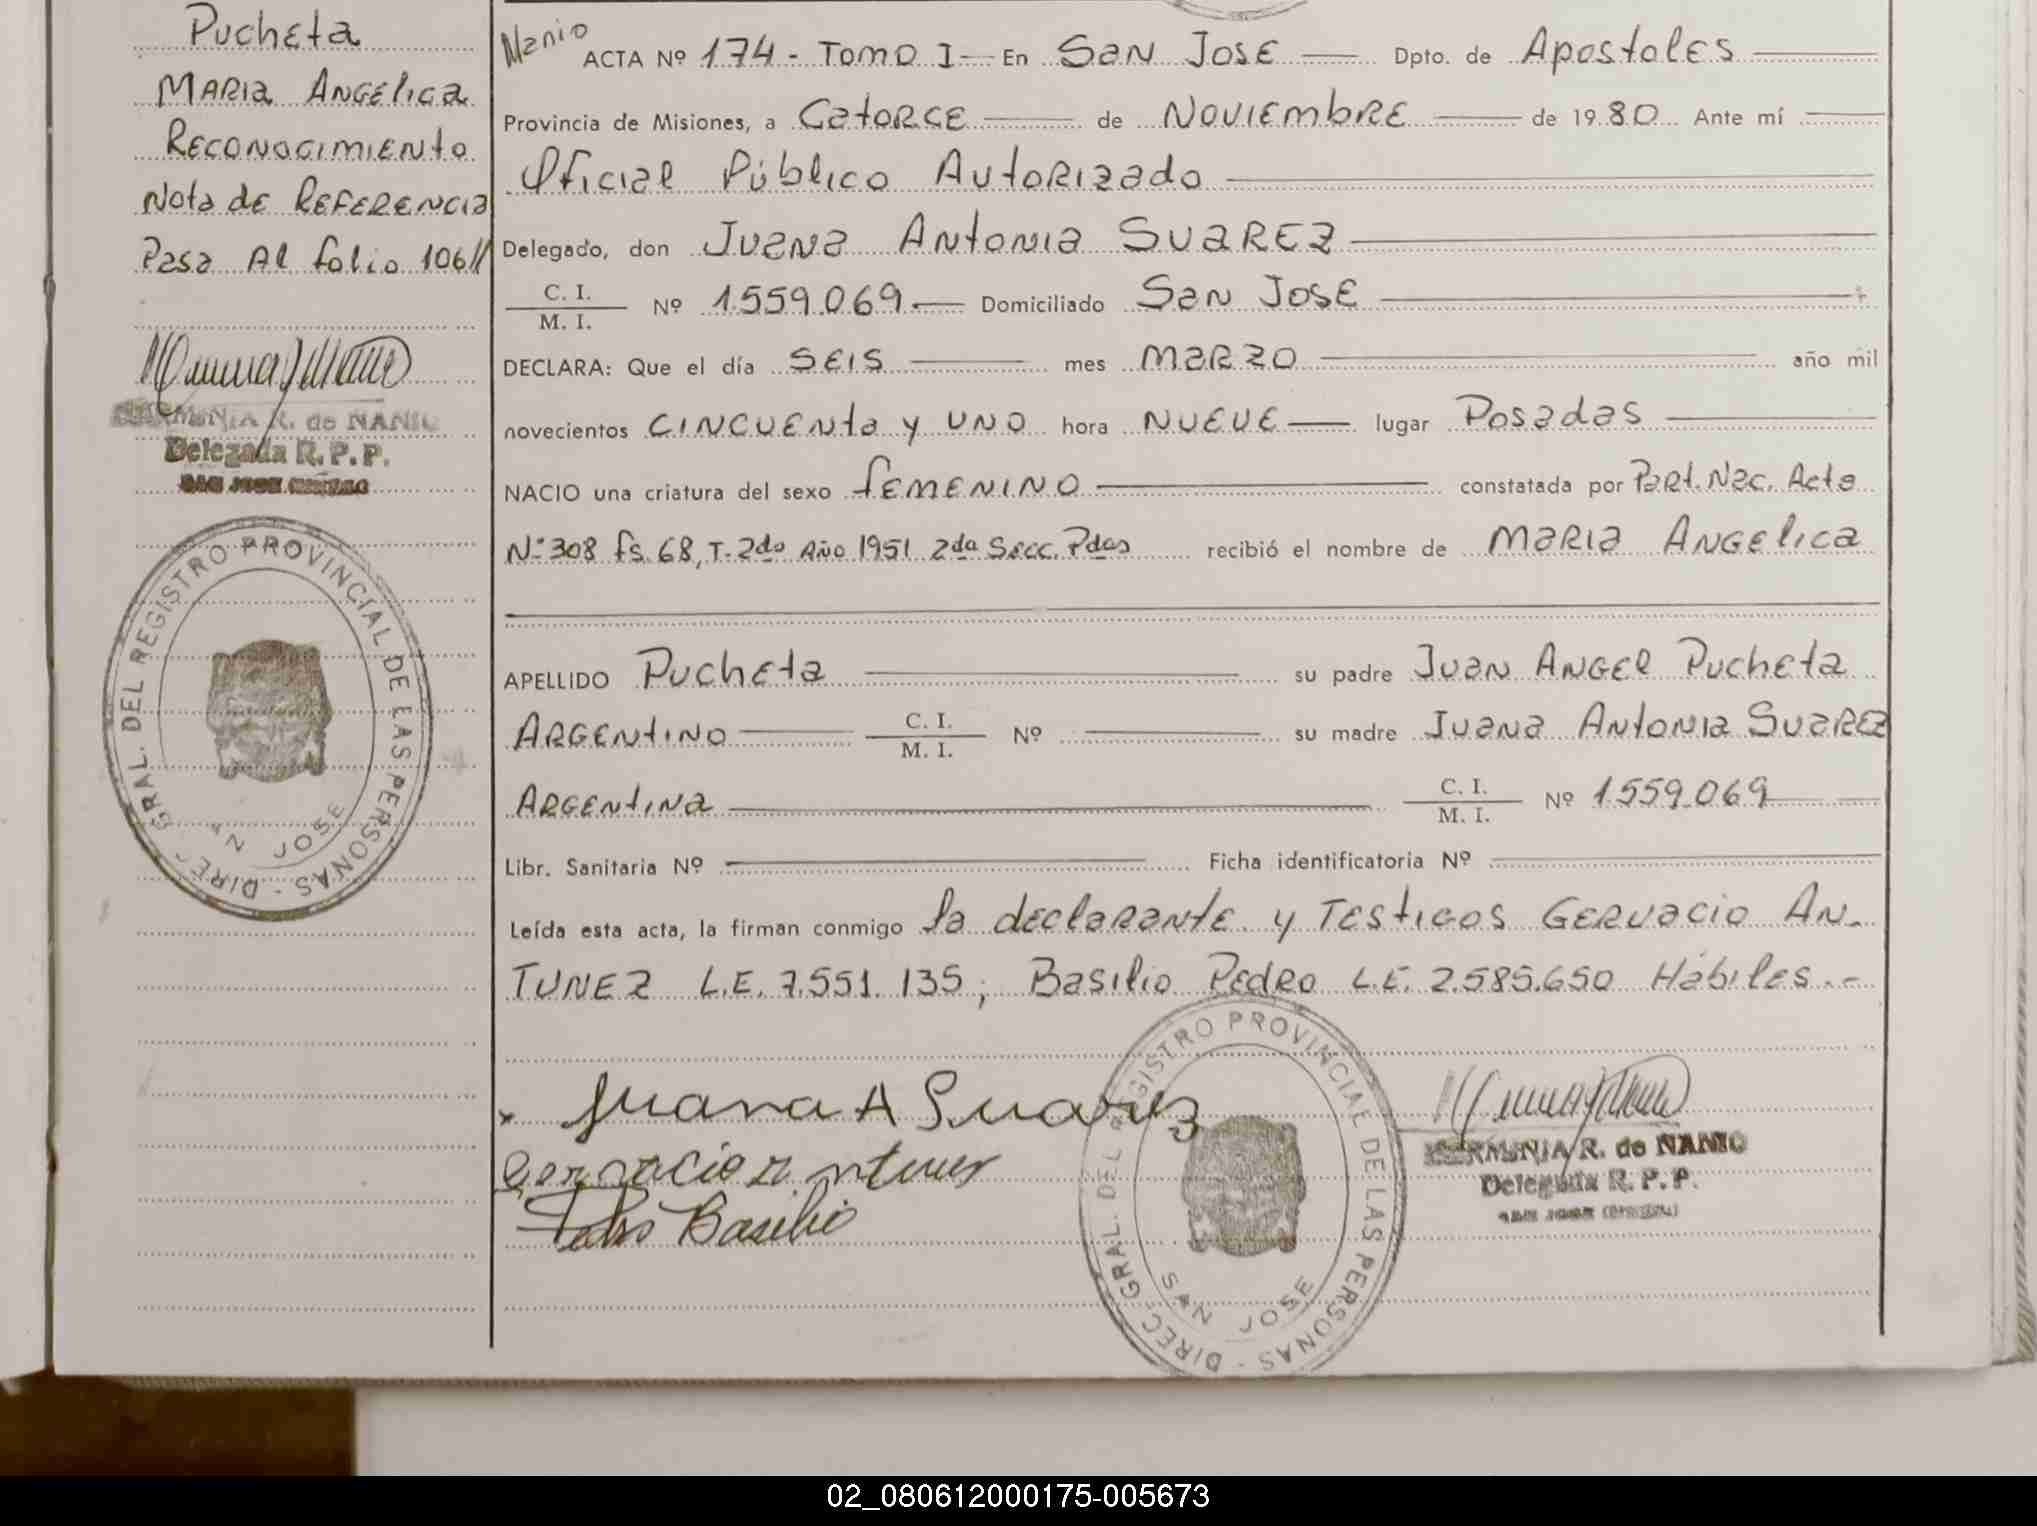 Pucheta
MARIA ANGÉLICA
RECONOCIMIENTO
Nota de REFERENCIA
Pasa Al folio 106//
HERMINIA R. de NANIO
Delegada R. P. P.
DIREC. GRAL. DEL REGISTRO PROVINCIAL DE LAS PERSONAS -
SAN JOSE
Nanio ACTA Nº 174 - TOMO I - En SAN JOSE Dpto. de Apostoles
Provincia de Misiones, a CatORCE de NOVIEmbRE de 19 80 Ante mí
Oficial Público AUtoRizado
Delegado, don Juana Antonia SUAREZ
C. I.
M. I.
Nº 1.559.069 Domiciliado San JOSE
DECLARA: Que el día SEIS mes MARZO año mil
novecientos CINCUENta y UNO hora NUEVE lugar Posadas
NACIO una criatura del sexo fEMENINO constatada por Part. Nac. Acta
Nº 308 fs. 68, T. 2do Año 1951 2da Secc. Pdas recibió el nombre de MARIA ANGElica
APELLIDO Pucheta su padre Juan ANGEl Pucheta
ARGENtiNO C. I.
M. I.
Nº su madre Juana Antonia SUAREZ
ARGENtINa C. I.
M. I.
Nº 1.559.069
Libr. Sanitaria Nº Ficha identificatoria Nº
Leída esta acta, la firman conmigo la declarante y Testigos GERVacio AN-
TUNEZ L.E. 7.551.135; Basilio Pedro L.E. 2.585.650 Hábiles.-
x Juana A Suarez
Gervacio Antunez
Pedro Basilio
DIREC. GRAL. DEL REGISTRO PROVINCIAL DE LAS PERSONAS -
SAN JOSE
HERMINIA R. de NANIO
Delegada R. P. P.
02_080612000175-005673